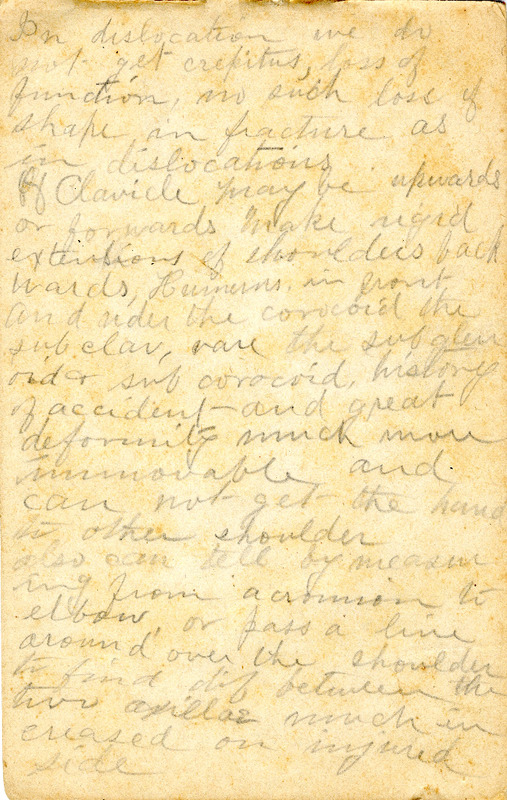 In dislocation we do
not get crepitus, loss of
function, no such loss of
shape in fracture as
in dislocations
Of Clavicle may be upwards
or forwards make rigid
extensions of shoulders back
wards, Humerus, in front
and under the corocoid the
sub clav, rare the sub glen
oid or sub corocoid, history
of accident and great
deformity much more
immovable and
can not get the hand
to other shoulder
also can tell by measur
ing from acromion to
elbow, or pass a line
around over the shoulder
to find dif between the
two axillae much in
creased on injured
side